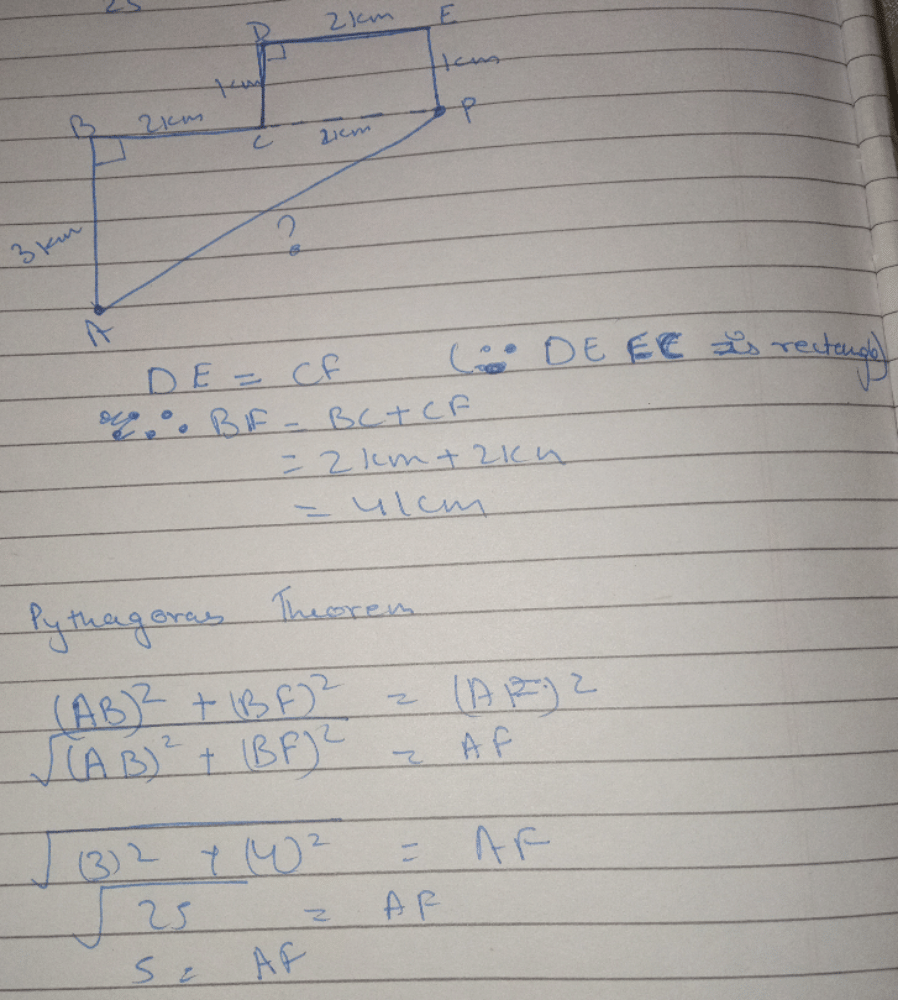 25
D 2km E
1km 1km
B 2km C 2km P
3km
?
A
DE = CF (∵ DE FC is rectangle)
∴ BF = BC + CF
= 2km + 2km
= 4km
Pythagoras Theorem
(AB)² + (BF)² = (AF)²
√(AB)² + (BF)² = AF
√(3)² + (4)² = AF
√25 = AF
5 = AF